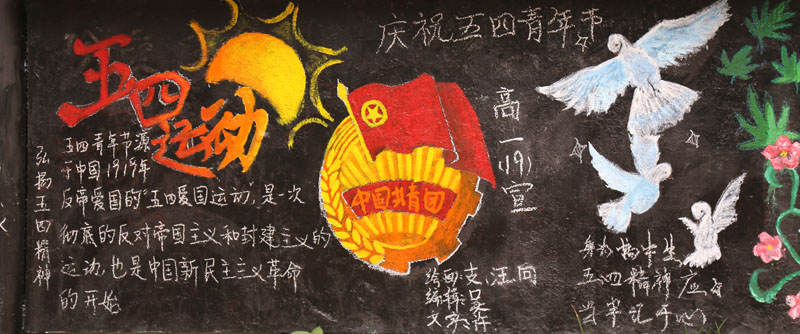 五四
运动
庆祝五四青年节
弘扬五四精神
五四青年节源
于中国1919年
反帝爱国的“五四爱国运动”,是一次
彻底的反对帝国主义和封建主义的
运动,也是中国新民主主义革命
的开始
中国共青团
高一(19)宣
绘画:支、汪、向
编辑:吴
文字:许
身为高中生
五四精神应
当牢记于心